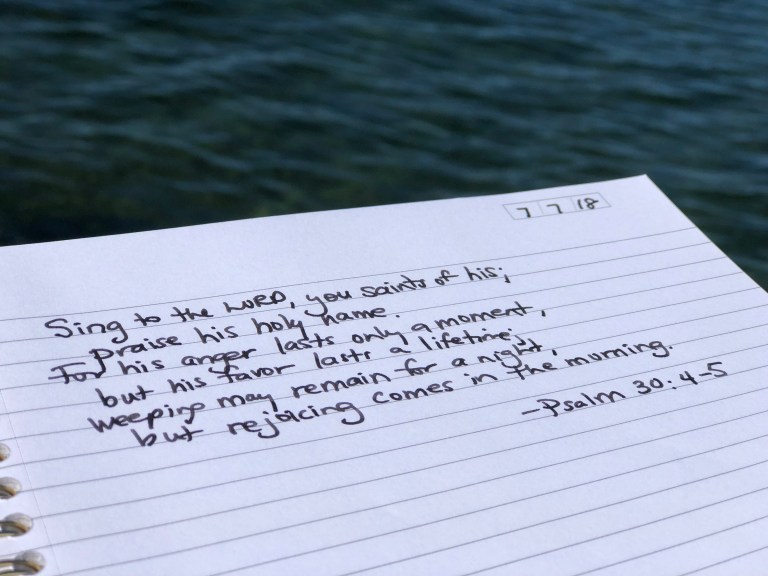 7 7 18
Sing to the LORD, you saints of his;
praise his holy name.
For his anger lasts only a moment,
but his favor lasts a lifetime;
weeping may remain for a night,
but rejoicing comes in the morning.
—Psalm 30:4-5